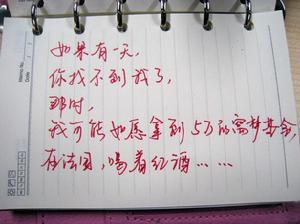 如果有一天,
你找不到我了,
那时,
我可能如愿拿到5万的寓梦基金,
在法国,喝着红酒……
Memo No.
Date